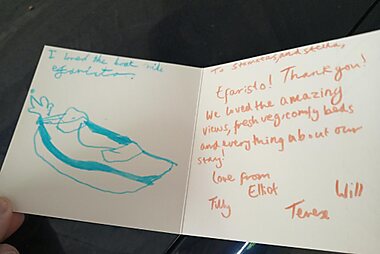 I loved the boat ride
efaristo.
To Stamatas, and Stella,
Efaristo! Thank you!
We loved the amazing
views, fresh veg, comfy beds
and everything about our
stay!
Love from
Elliot Will
Tilly Terex